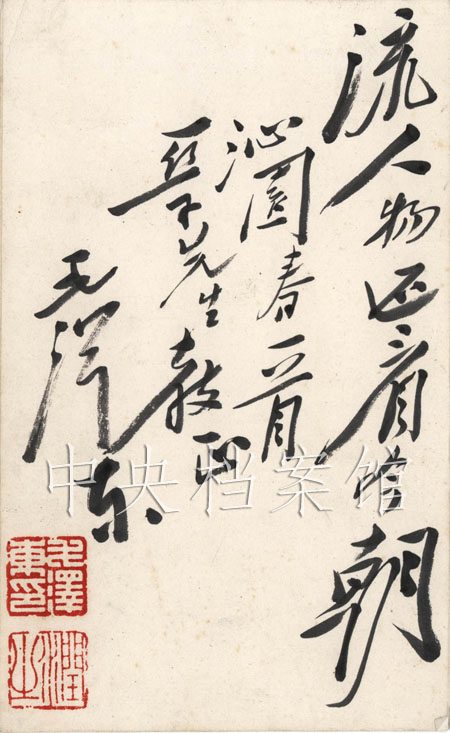 流人物还看今朝
沁园春一首
亚子先生教正
毛泽东
毛澤東印
潤之
中央档案馆